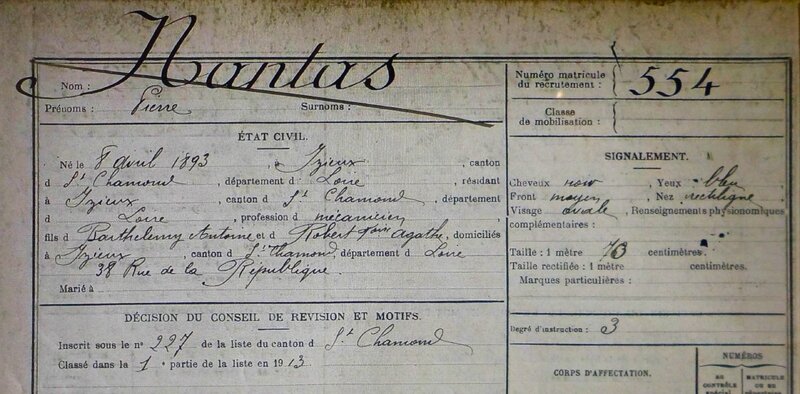 Nantas
Nom :
Prénoms : Pierre Surnoms :
ÉTAT CIVIL.
Né le 8 avril 1893, à Izieux, canton
d St Chamond, département d Loire, résidant
à Izieux, canton d St Chamond, département
d Loire, profession d mécanicien,
fils d Barthelemy Antoine et d Robert Marie Agathe, domiciliés
à Izieux, canton d St Chamond, département d Loire
38 Rue de la République.
Marié à
DÉCISION DU CONSEIL DE REVISION ET MOTIFS.
Inscrit sous le n° 227 de la liste du canton d St Chamond
Classé dans la 1e partie de la liste en 1913
Numéro matricule
du recrutement : 554
Classe
de mobilisation :
SIGNALEMENT.
Cheveux noir, Yeux bleu
Front moyen, Nez rectiligne,
Visage ovale, Renseignements physionomiques
complémentaires :
Taille : 1 mètre 73 centimètres.
Taille rectifiée : 1 mètre centimètres.
Marques particulières :
Degré d'instruction : 3
CORPS D'AFFECTATION.
NUMÉROS
AU
CONTRÔLE
spécial
MATRICULE
OU AU
répertoire